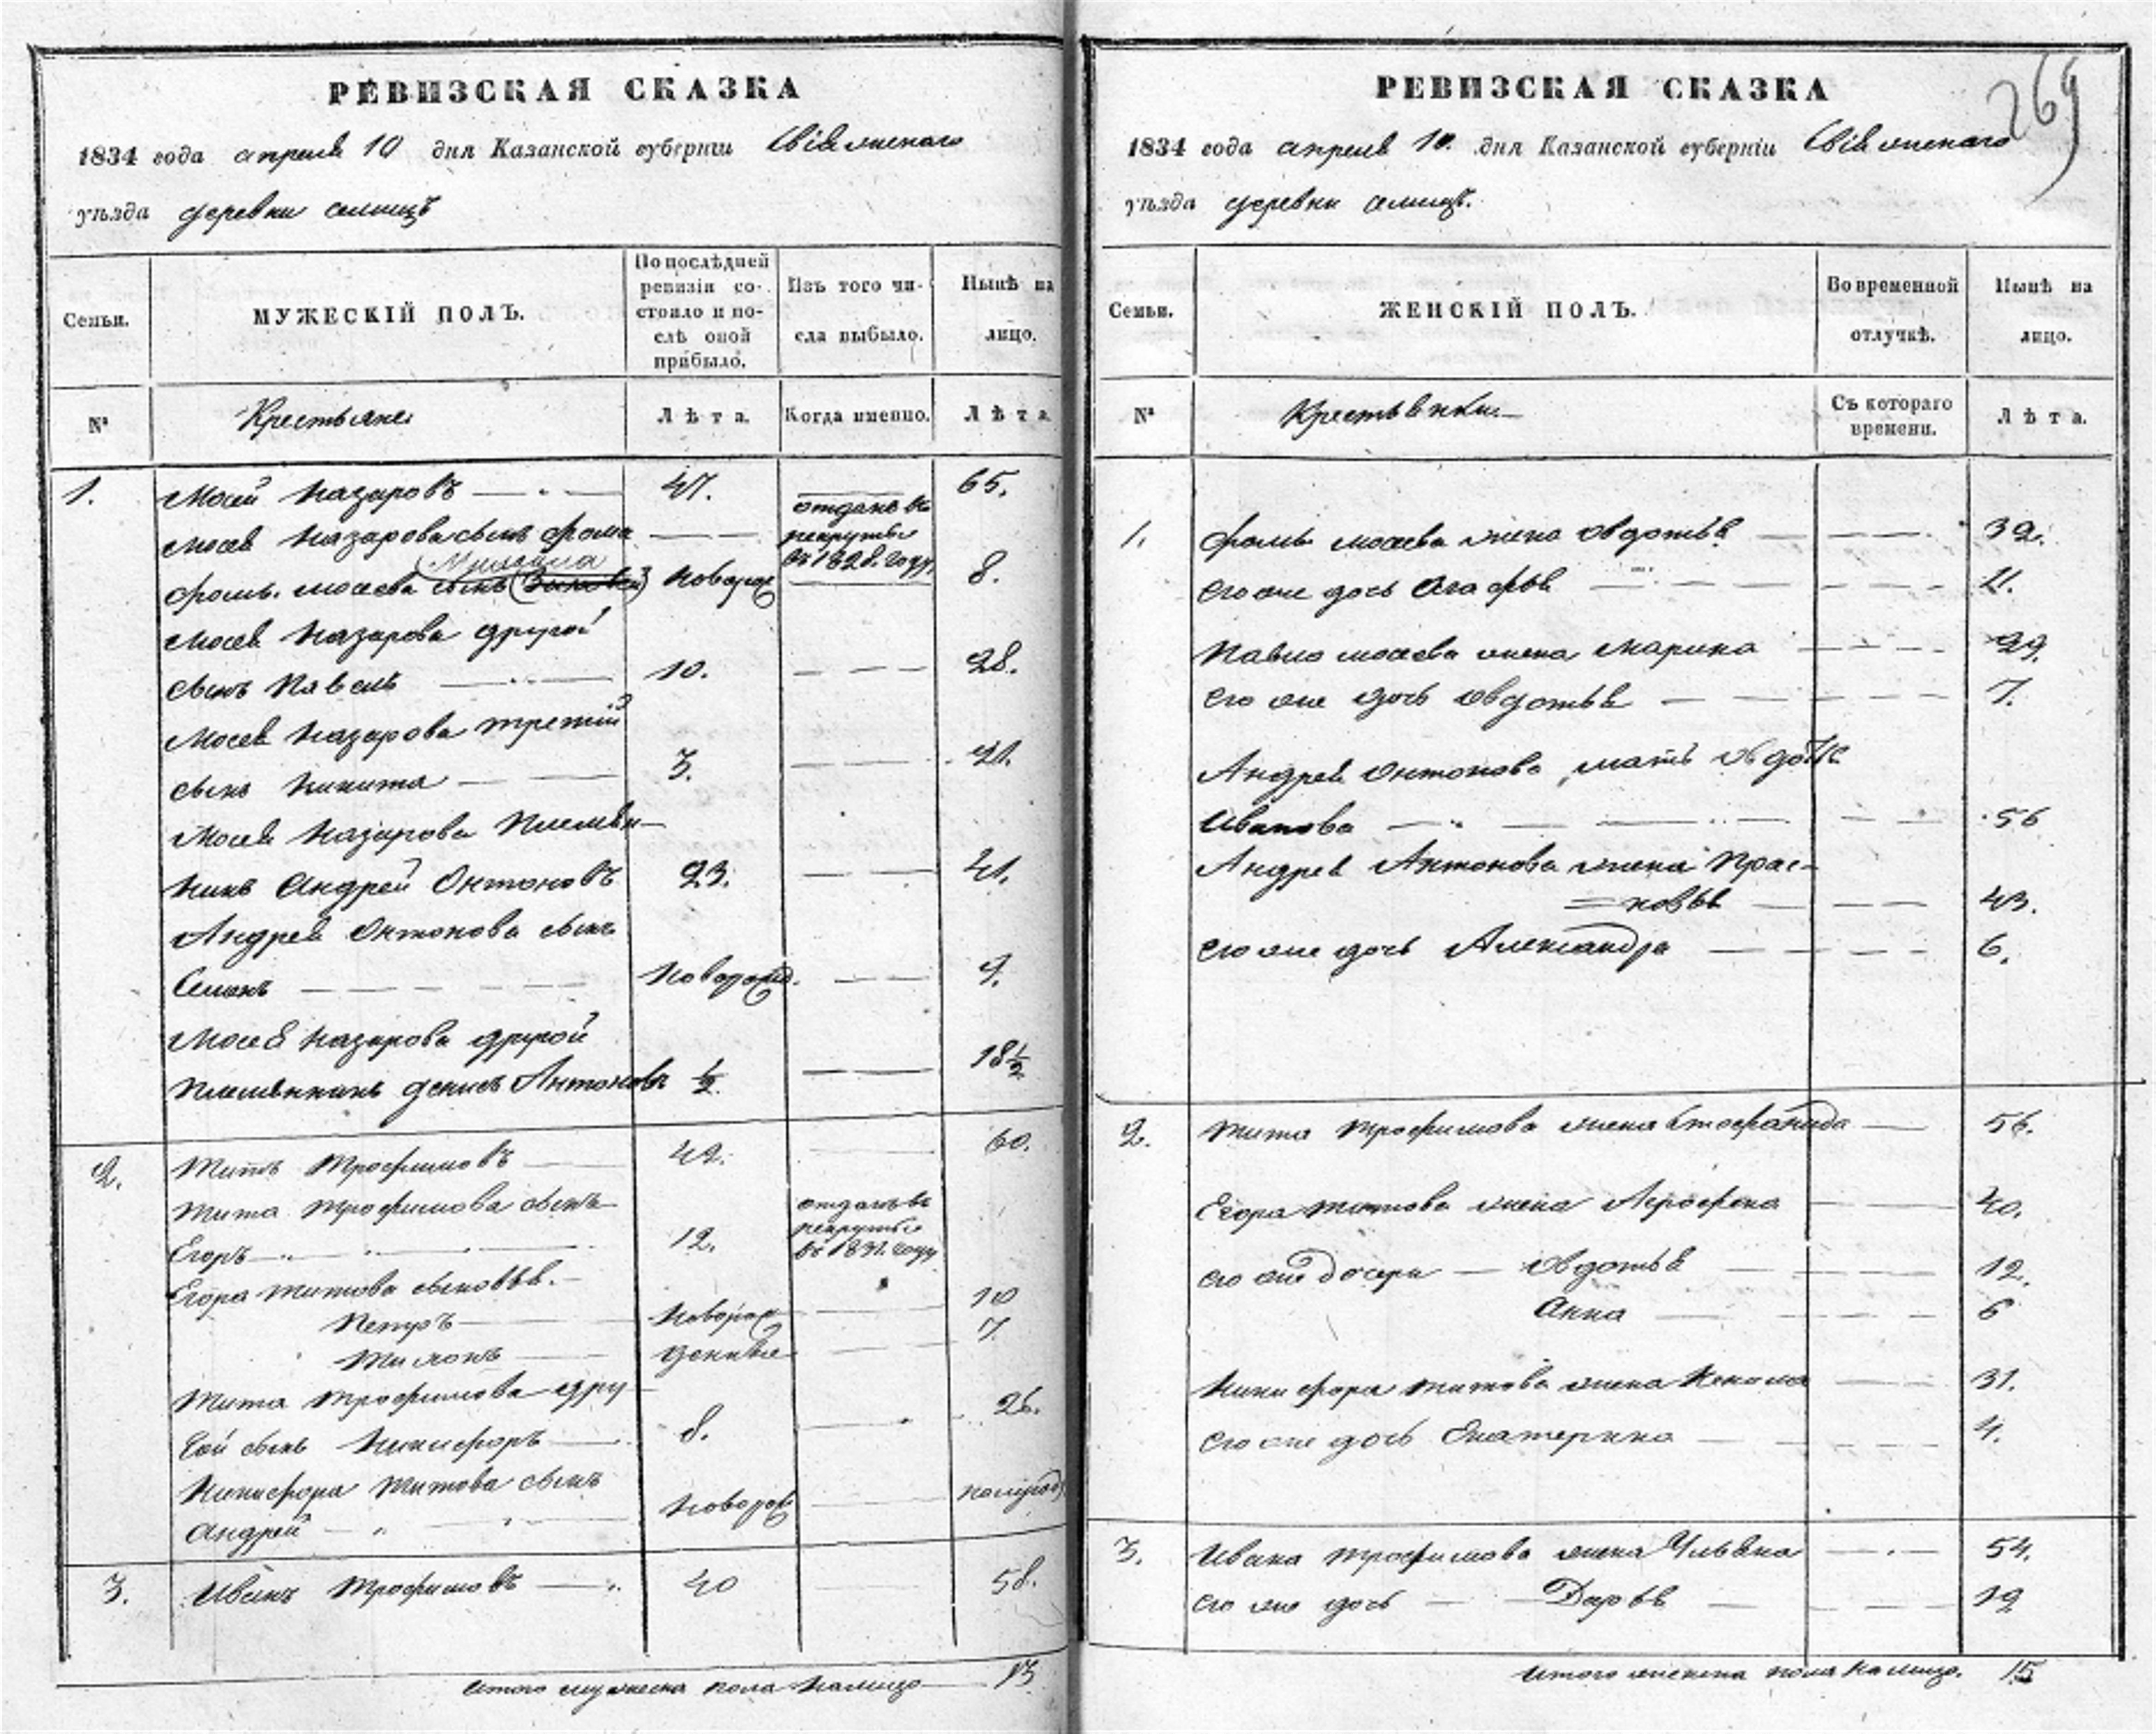 РЕВИЗСКАЯ СКАЗКА
1834 года апреля 10 дня Казанской губерніи Свіяжскаго
уѣзда деревни
Семьи.
МУЖЕСКІЙ ПОЛЪ.
По послѣдней ревизіи состояло и послѣ оной прибыло.
Изъ того числа выбыло.
Нынѣ на лицо.
№
Крестьяне
Лѣта.
Когда именно.
Лѣта
1. Мосей Назаровъ 47. 65.
Мосея Назарова сынъ Фома отданъ въ рекруты въ 1828. году
Михаила
Фомы. Мосеева сынъ новорож 8.
Мосея Назарова другой
сынъ Павелъ 10. 28.
Мосея Назарова третий
сынъ Никита 3. 21.
Мосея Назарова племян-
никъ Андрей Онтоновъ 23. 41.
Андрея Онтонова сынъ
Семенъ новорожд. 9.
Мосея Назарова другой
племянникъ Денисъ Антоновъ ½ 18½
2. Титъ Трофимовъ 42. 60.
Тита Трофимова сынъ
Егоръ 12. отданъ въ рекруты въ 1831. году
Егора Титова сыновья.
Петръ новорож 10
Тимонъ денные 7
Тита Трофимова дру
гой сынъ Никифоръ 8. 26.
Никифора Титова сынъ
Андрей новорож полугод
3. Иванъ Трофимовъ 40 58.
Итого мужеска пола налицо 13
269
РЕВИЗСКАЯ СКАЗКА
1834 года апреля 10. дня Казанской губерніи Свіяжскаго
уѣзда деревни
Семьи.
ЖЕНСКІЙ ПОЛЪ.
Во временной отлучкѣ.
Нынѣ на лицо.
№
Крестьянки
Съ котораго времени.
Лѣта.
1. Фомы Мосеева жена Овдотья 39.
Его же дочь Агафья 11.
Павла Мосеева жена Марина 29.
Его же дочь Овдотья 7.
Андрея Онтонова мать Овдотья
Иванова 56
Андрея Антонова жена Прас-
=ковья 43.
Его же дочь Александра 6.
2. Тита Трофимова жена 56.
Егора Титова жена 40.
Его же дочери Овдотья 12.
Анна 6
Никифора Титова жена 31.
Его же дочь Екатерина 4.
3. Ивана Трофимова жена Ульяна 54.
Его же дочь Дарья 19
Итого женска пола налицо. 15